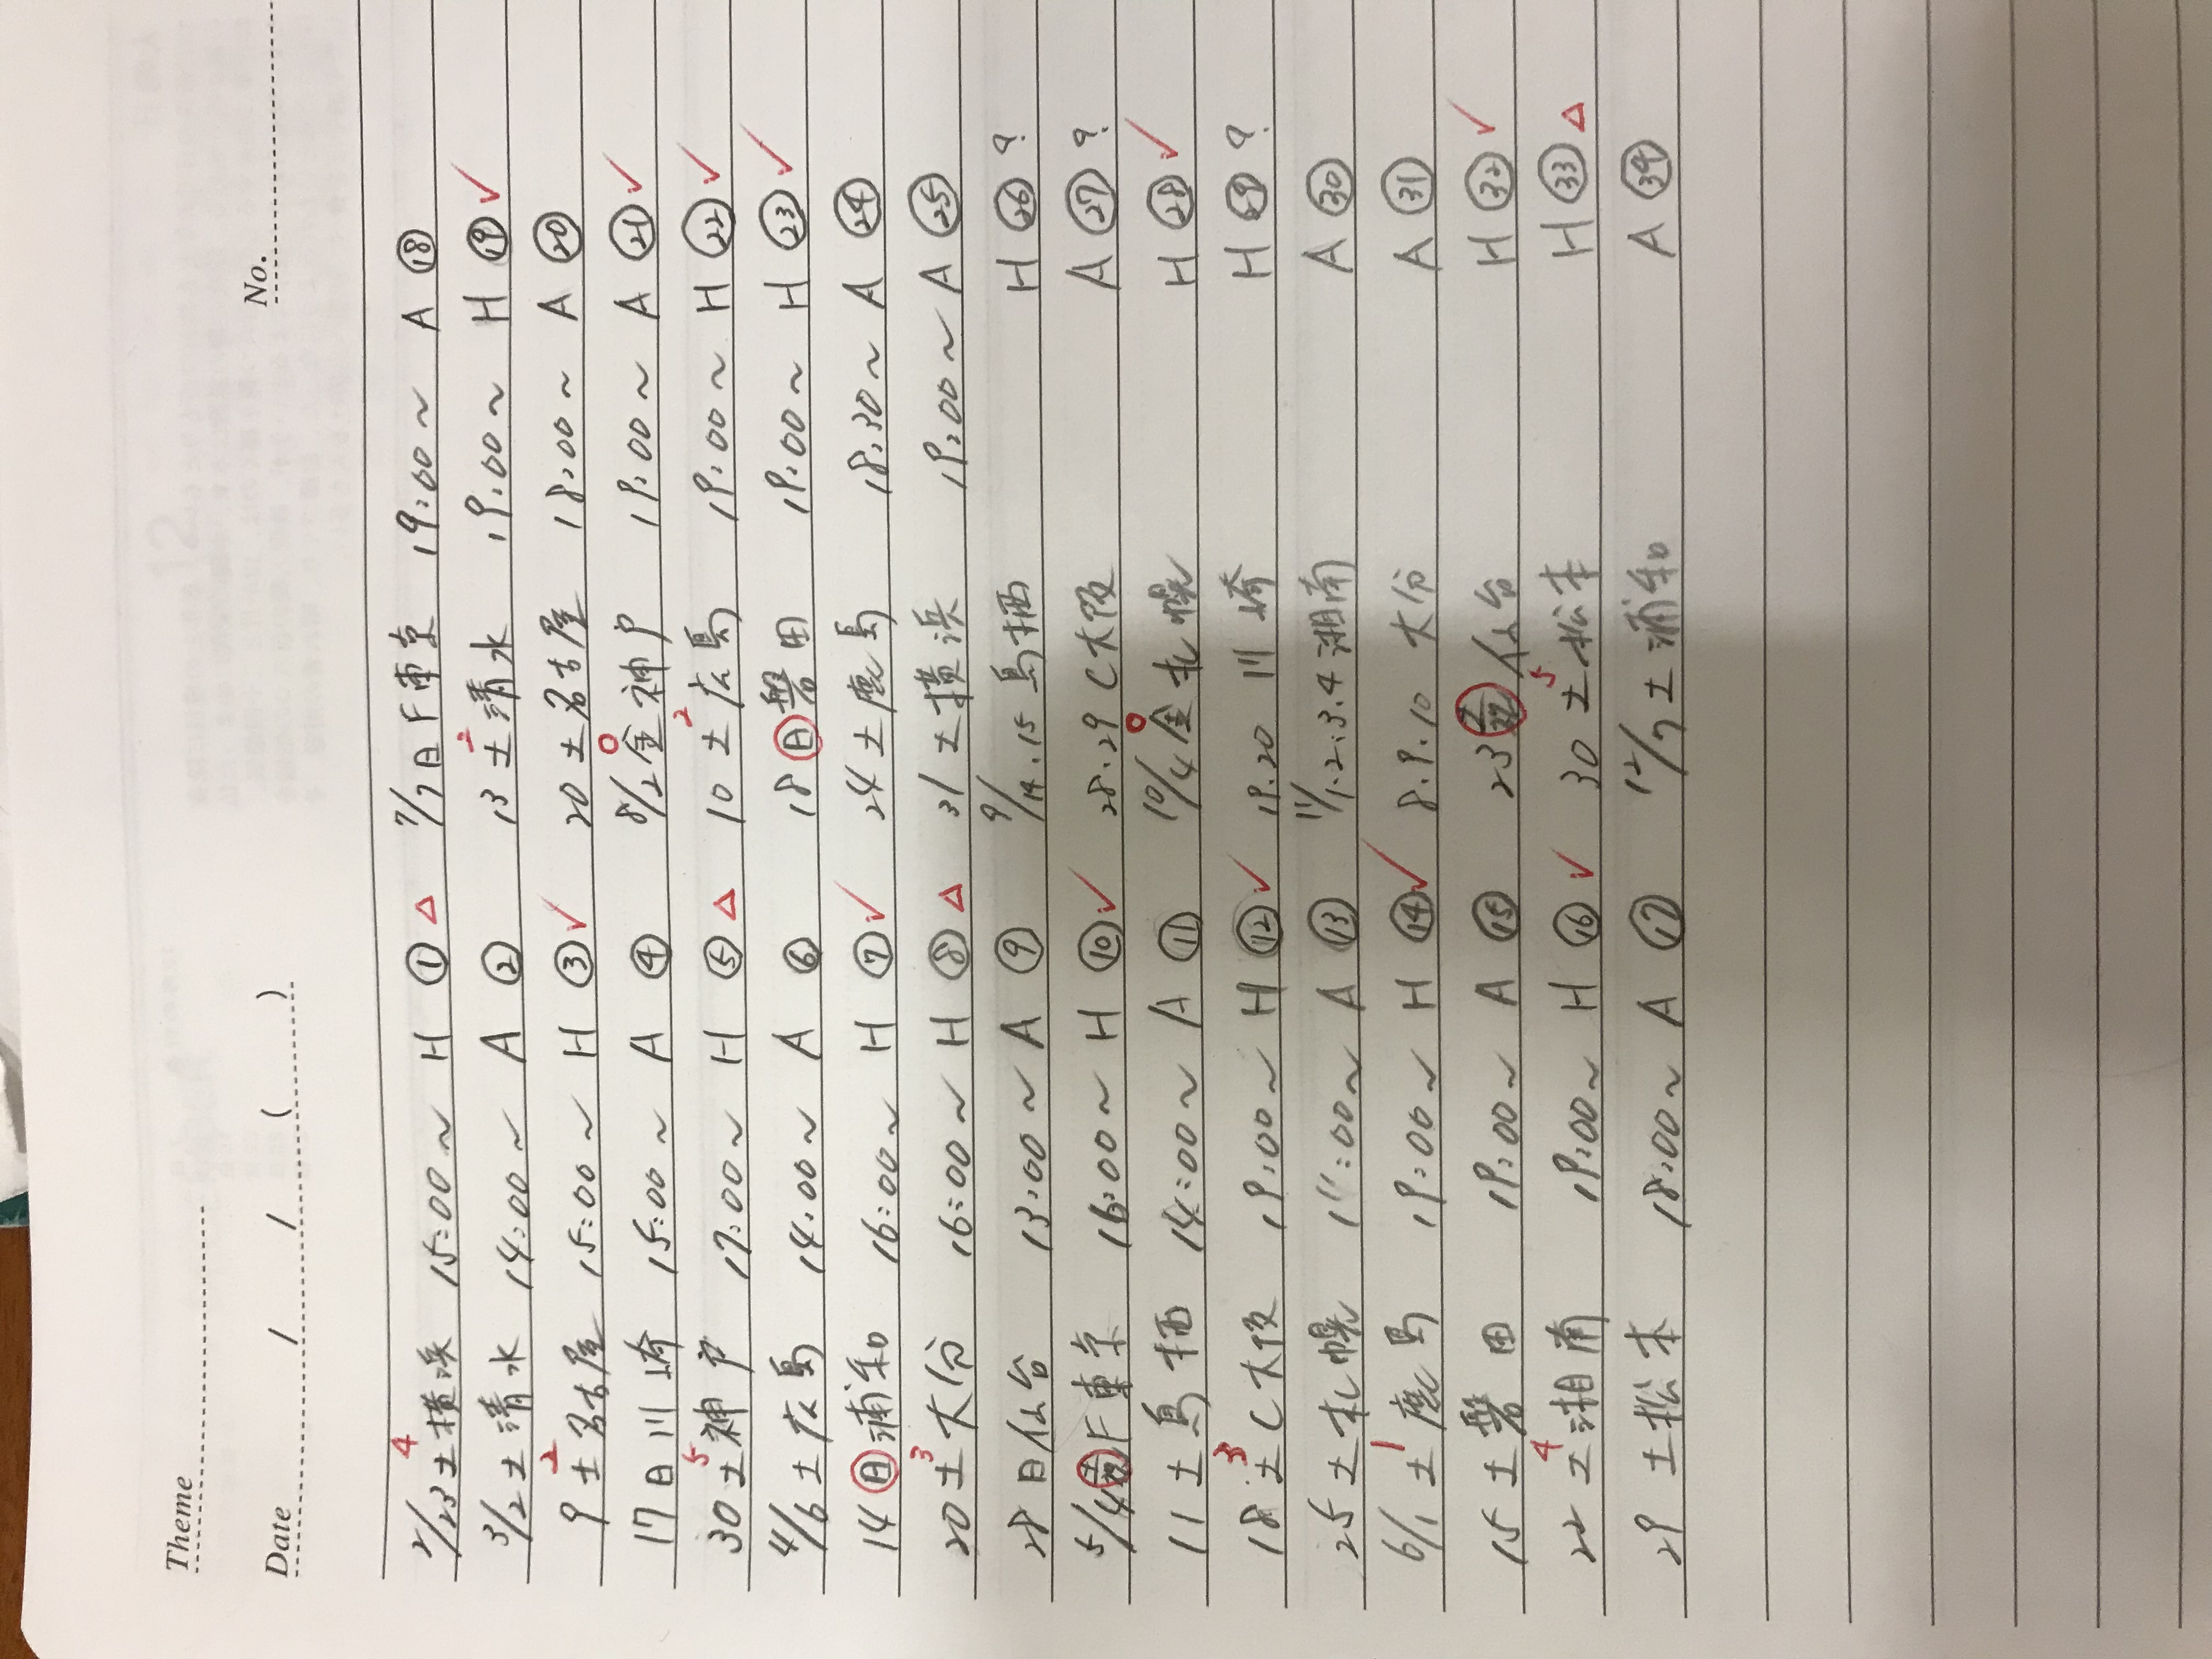 Theme
Date / / ( ) No.
2/23 土4 横浜 15:00～ H ① △ 7/7 日 F東京 19:00～ A ⑱
3/2 土 清水 14:00～ A ② 13 土2 清水 19:00～ H ⑲ ✓
9 土2 名古屋 15:00～ H ③ ✓ 20 土 名古屋 18:00～ A ⑳
17 日 川崎 15:00～ A ④ 8/2 金0 神戸 19:00～ A ㉑ ✓
30 土5 神戸 17:00～ H ⑤ △ 10 土2 広島 19:00～ H ㉒ ✓
4/6 土 広島 14:00～ A ⑥ 18 日 磐田 19:00～ H ㉓ ✓
14 日 浦和 16:00～ H ⑦ ✓ 24 土 鹿島 18:30～ A ㉔
20 土3 大分 16:00～ H ⑧ △ 31 土 横浜 19:00～ A ㉕
28 日 仙台 13:00～ A ⑨ 9/14.15 鳥栖 H ㉖ ?
5/4 F東京 16:00～ H ⑩ ✓ 28.29 C大阪 A ㉗ ?
11 土 鳥栖 14:00～ A ⑪ 10/4 金0 札幌 H ㉘ ✓
18 土3 C大阪 19:00～ H ⑫ ✓ 19.20 川崎 H ㉙ ?
25 土 札幌 14:00～ A ⑬ 11/1.2.3.4 湘南 A ㉚
6/1 土1 鹿島 19:00～ H ⑭ ✓ 8.9.10 大分 A ㉛
15 土 磐田 19:00～ A ⑮ 23 仙台 H ㉜ ✓
22 土4 湘南 19:00～ H ⑯ ✓ 30 土5 松本 H ㉝ △
29 土 松本 18:00～ A ⑰ 12/7 土 浦和 A ㉞